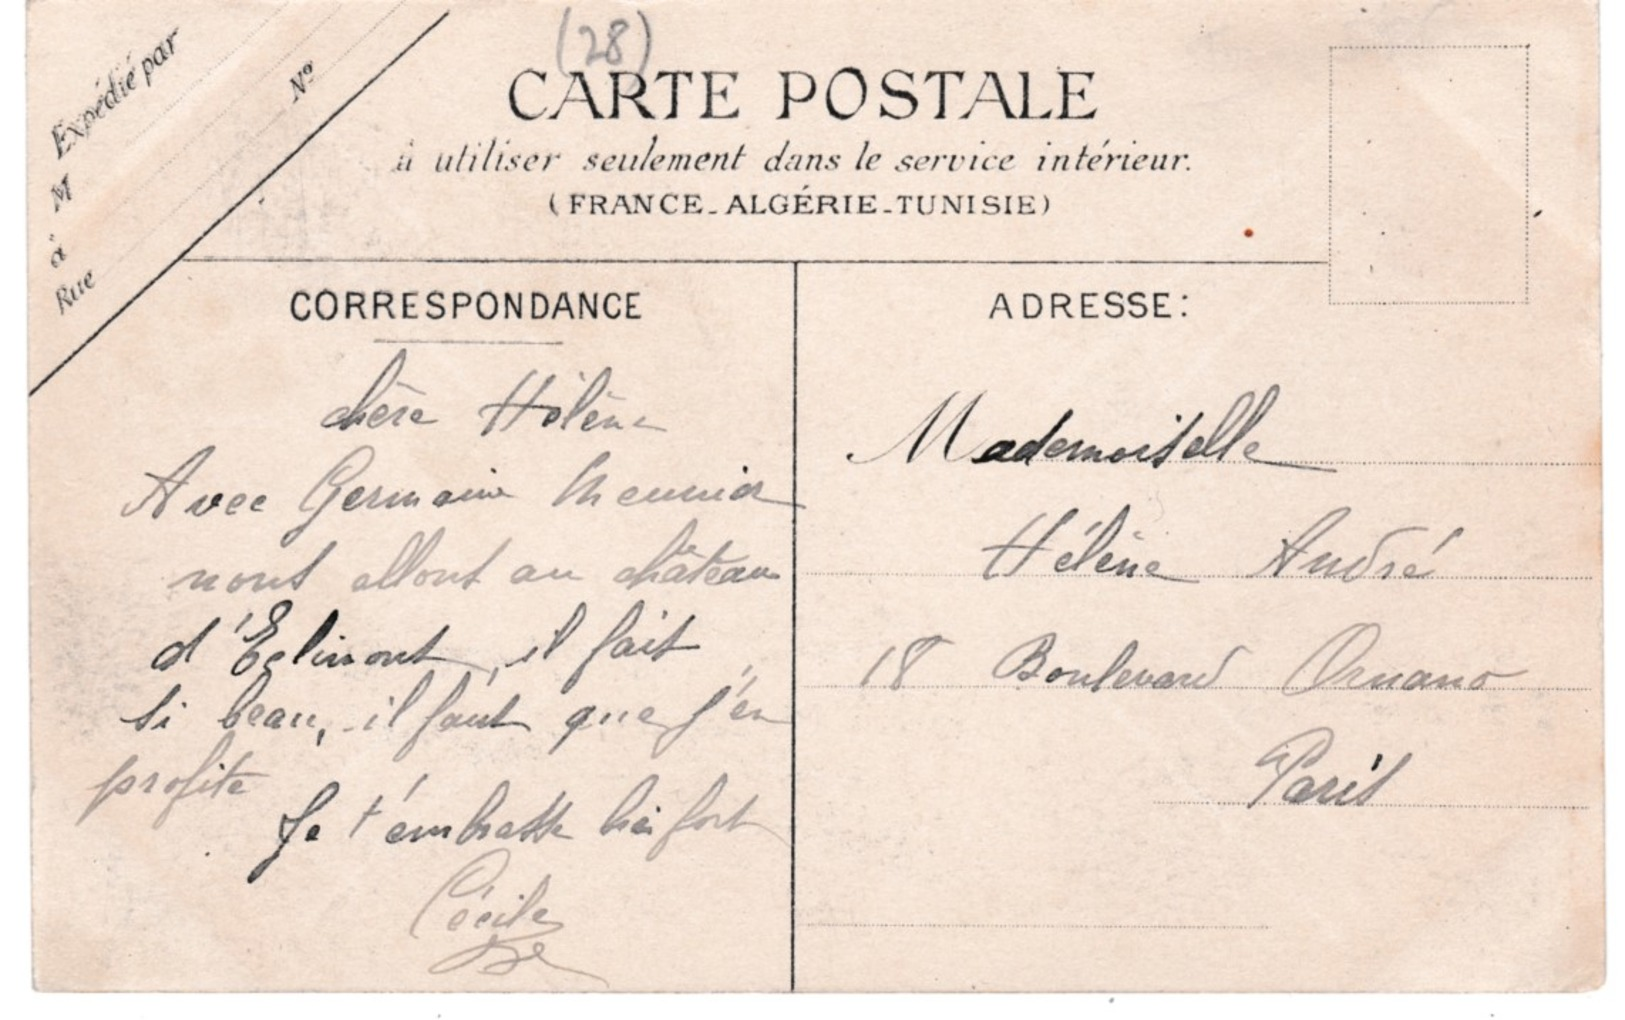 (28)
CARTE POSTALE
à utiliser seulement dans le service intérieur.
(FRANCE-ALGÉRIE-TUNISIE)
Expédié par
M
à
Rue
N°
CORRESPONDANCE
chère Hélène
Avec Germaine Meunier
nous allons au château
d'Eclimont, il fait
si beau, il faut que j'en
profite
Je t'embrasse bien fort
Cécile
ADRESSE:
Mademoiselle
Hélène André
18 Boulevard Ornano
Paris